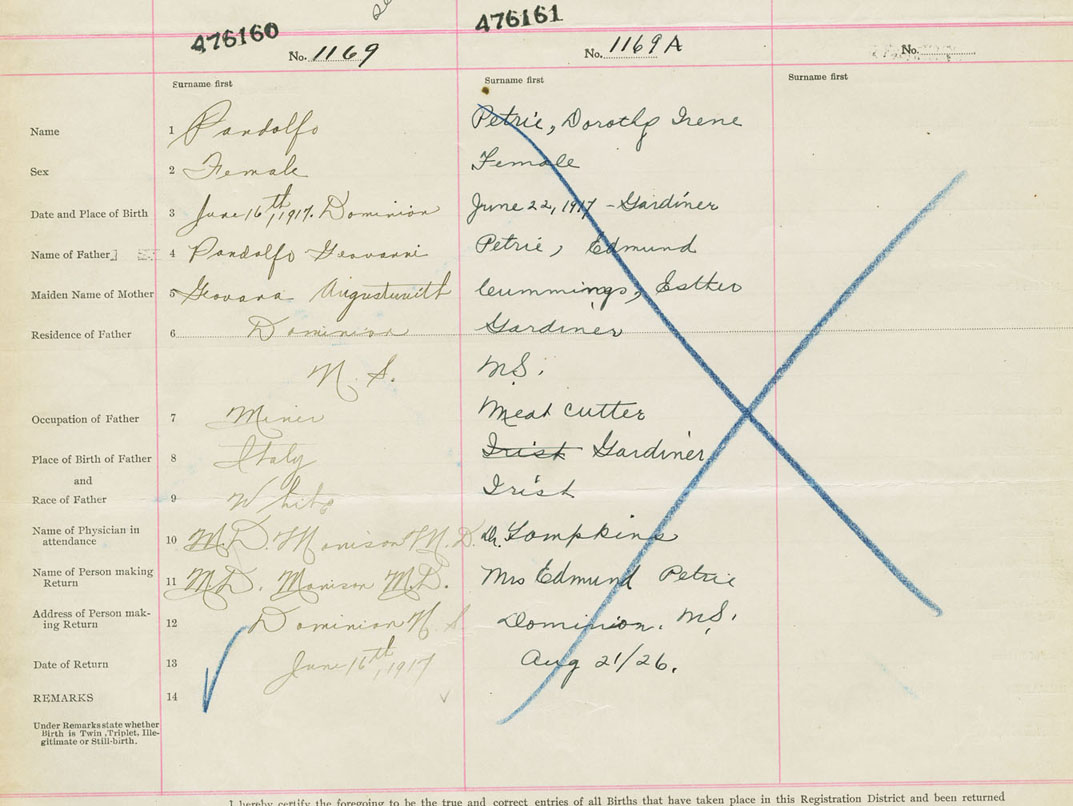 476160
476161
No. 1169
No. 1169 A
No.
Surname first
Surname first
Surname first
Name 1 Pandolfo Petrie, Dorothy Irene
Sex 2 Female Female
Date and Place of Birth 3 June 16th, 1917. Dominion June 22, 1917 - Gardiner
Name of Father 4 Pandolfo Geovanni Petrie, Edmund
Maiden Name of Mother 5 Geovana Petrie Cummings, Esther
Residence of Father 6 Dominion Gardiner
N. S. N.S.
Occupation of Father 7 Miner Meat cutter
Place of Birth of Father 8 Italy Irish Gardiner
and
Race of Father 9 White Irish
Name of Physician in
attendance 10 M.D. Morison M.D. Dr. Tompkins
Name of Person making
Return 11 M.D. Morison M.D. Mrs Edmund Petrie
Address of Person mak-
ing Return 12 Dominion N. S Dominion. N.S.
Date of Return 13 June 16th, 1917 Aug 21/26.
REMARKS 14
Under Remarks state whether
Birth is Twin, Triplet, Ille-
gitimate or Still-birth.
I hereby certify the foregoing to be the true and correct entries of all Births that have taken place in this Registration District and been returned